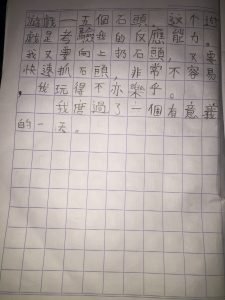 游戲一五個石頭，这个遊
戲是考驗我的反應能力。
我又要向上扔石頭，又要
快速抓石頭，非常不容易
，我玩得不亦樂乎。
我度過了一個有意義
的一天。